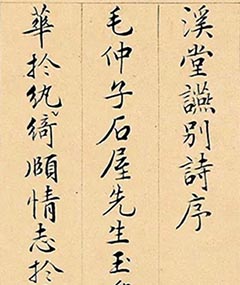 溪堂讌別詩序
毛仲子石屋先生玉
華扵紈綺頤情志扵